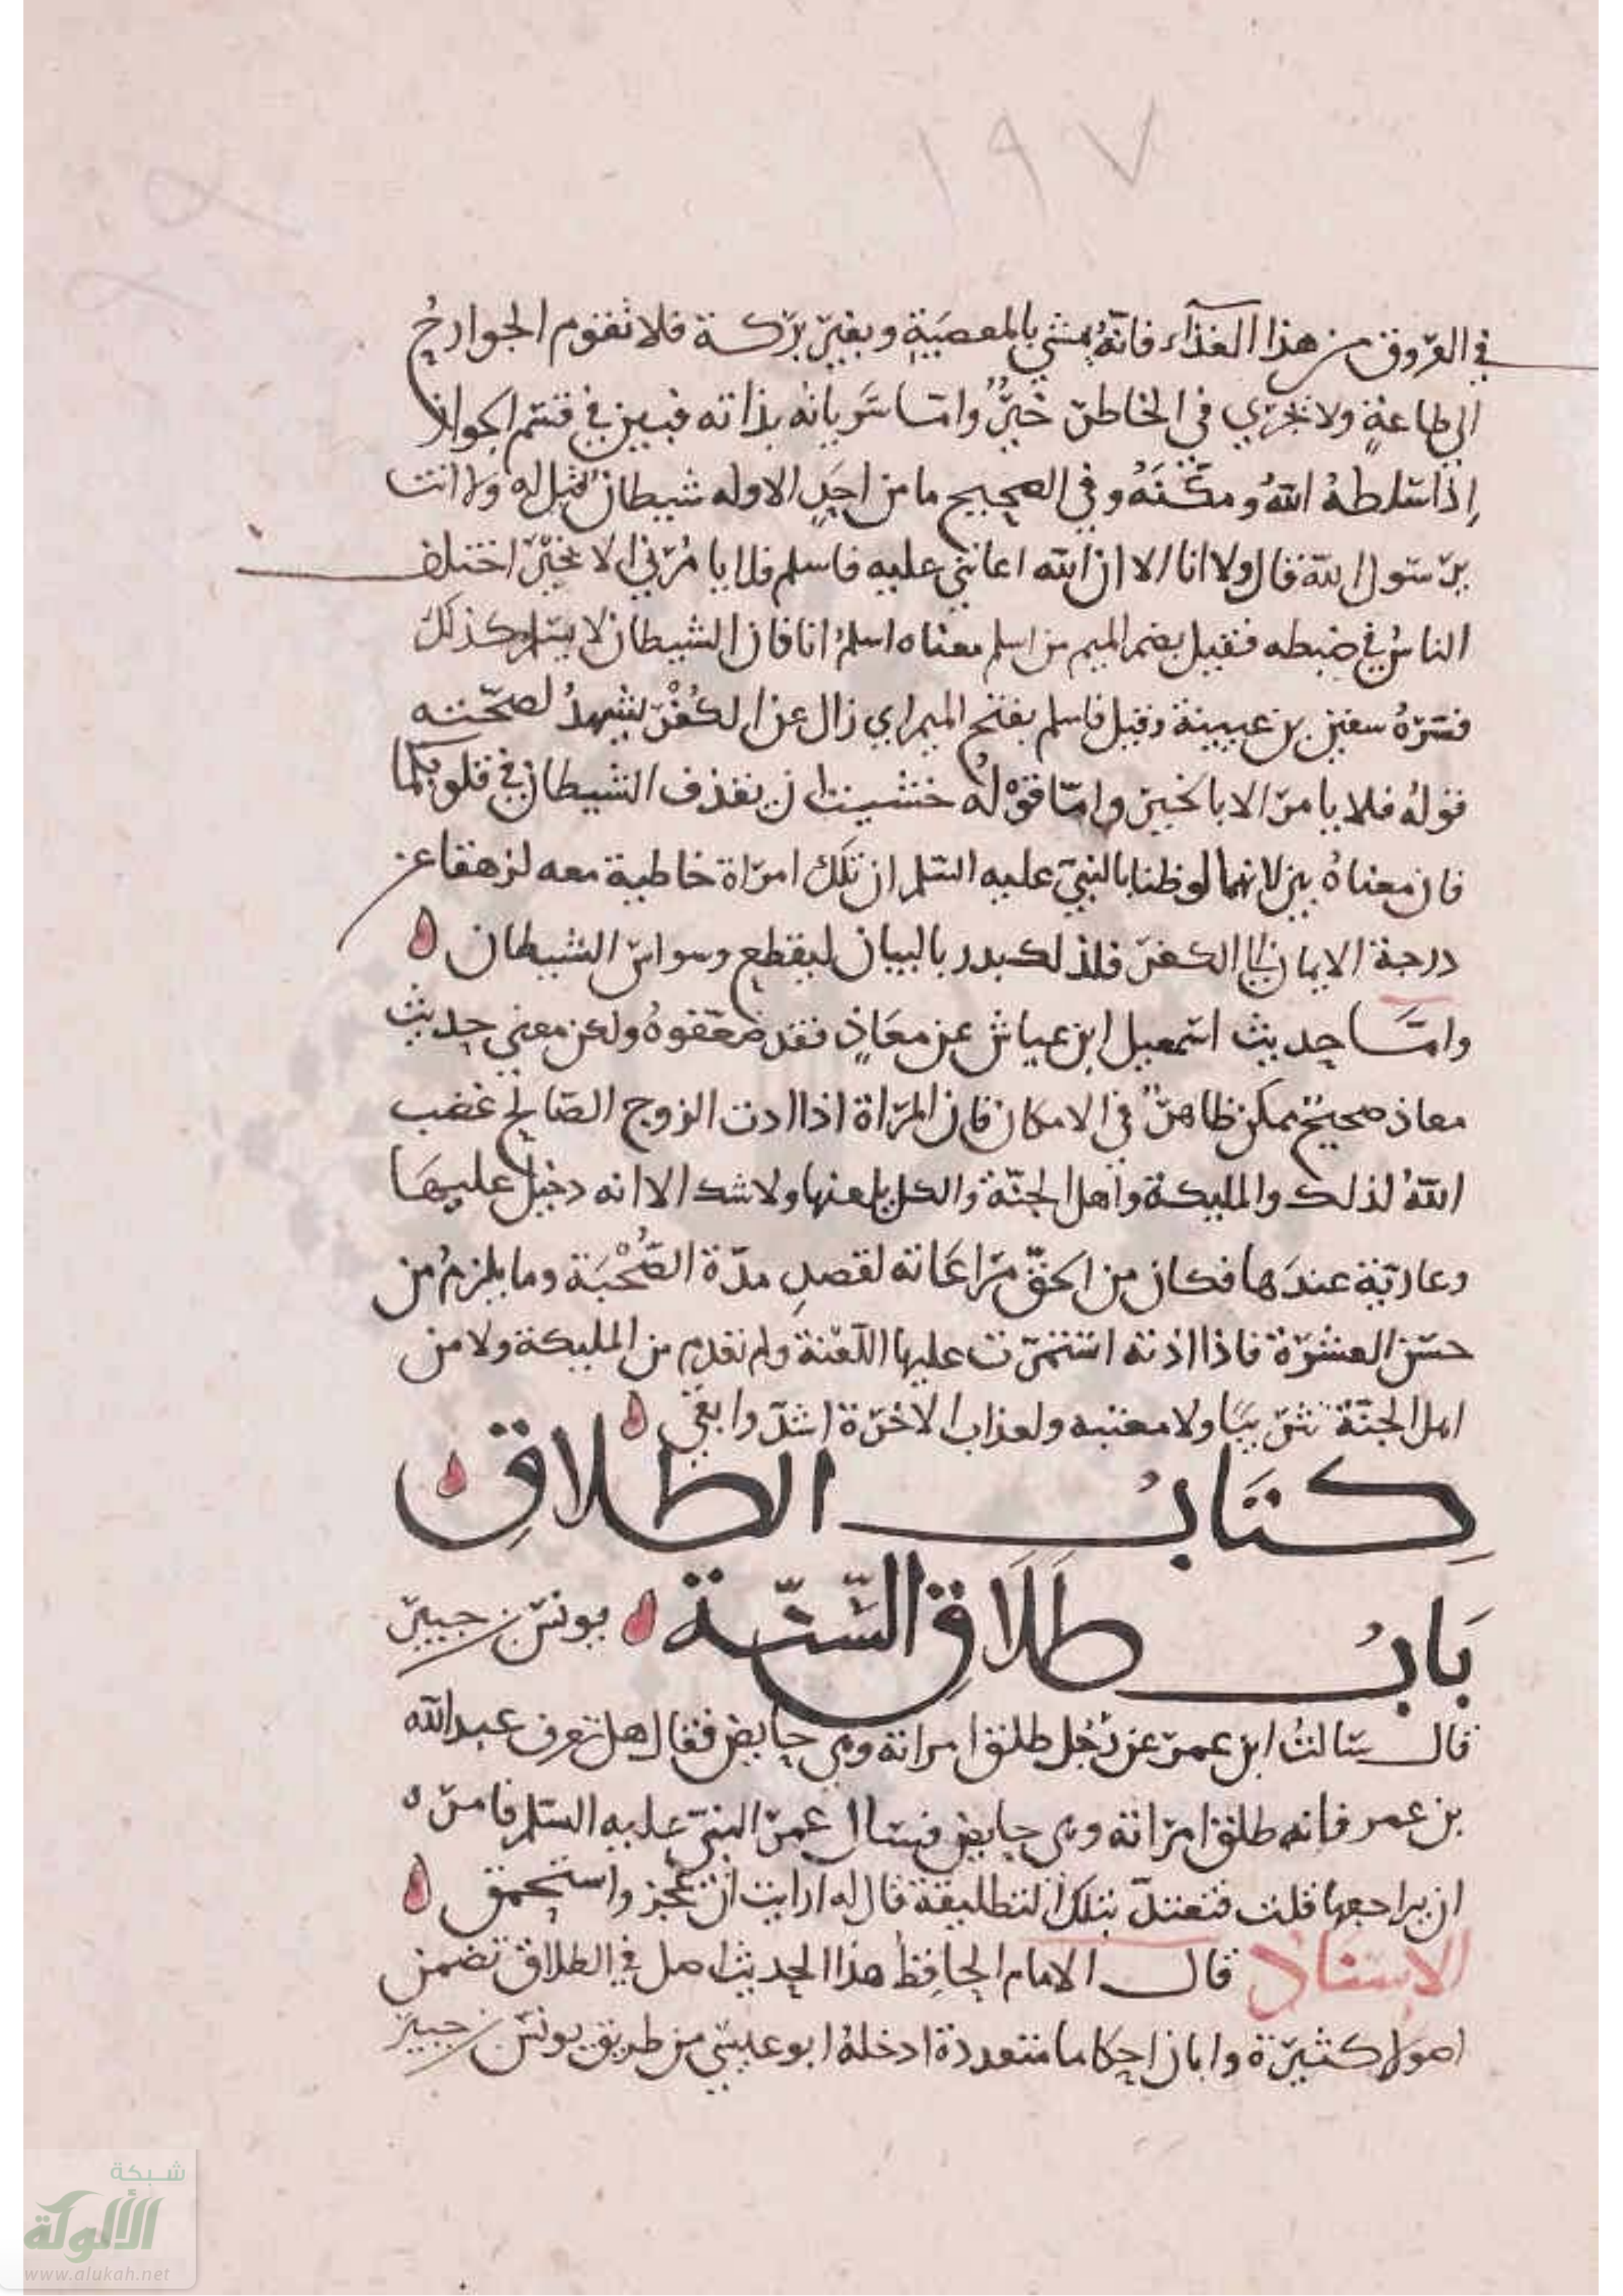 ١٩٧
في العروق من هذا الغذاء فانه يمشي بالمعصية وبغير بركة فلا تقوم الجوارح
الى طاعة ولا يجري في الخاطر خير واما سريانه بذاته فبين في قسم الجواز
إذا سلطه الله ومكنه وفي الصحيح ما من احد الا وله شيطان قيل له ولا انت
يرسول الله قال ولا انا الا ان الله اعانني عليه فاسلم فلا يامرني الا بخير اختلف
الناس في ضبطه فقيل بضم الميم من اسلم معناه اسلم انا فان الشيطان لا يسلم كذلك
فسره سفين بن عيينة وقيل فاسلم بفتح الميم اي زال عن الكفر يشهد لصحته
قوله فلا يامر الا بالخير واما قوله خشيت ان يقذف الشيطان في قلوبكما
فان معناه بين لانهما لو ظنا بالنبي عليه السلم ان تلك امراة خاطية معه لزهقا عن
درجة الايمان الى الكفر فلذلك بدر بالبيان ليقطع وسواس الشيطان ه
واما حديث اسمعيل ابن عياش عن معاذ فقد ضعفوه ولكن معنى حديث
معاذ صحيح ممكن ظاهر في الامكان فان المراة اذا اذت الزوج الصالح غضب
الله لذلك والمليكة وأهل الجنة والكل يلعنها ولا شك الا انه دخيل عليها
وعارية عندها فكان من الحق مراعاته لقصر مدة الصحبة وما يلزم من
حسن العشرة فاذا اذته استمرت عليها اللعنة ولم تعدم من المليكة ولا من
اهل الجنة تثريبا ولا معتبه ولعذاب الاخرة اشد وابقى ه
كتاب الطلاق ه
باب طلاق السنة ه يونس بن جبير
قال سالت ابن عمر عن رجل طلق امراته وهي حايض فقال هل تعرف عبد الله
بن عمر فانه طلق امراته وهي حايض فسال عمر النبي عليه السلم فامره
ان يراجعها قلت فتعتد بتلك التطليقة قال له ارايت ان عجز واستحمق ه
الاسناد قال الامام الحافظ هذا الحديث اصل في الطلاق تضمن
اصولا كثيرة وابان احكاما متعددة ادخله ابو عيسى من طريق يونس بن جبير
شبكة
الألوكة
www.alukah.net